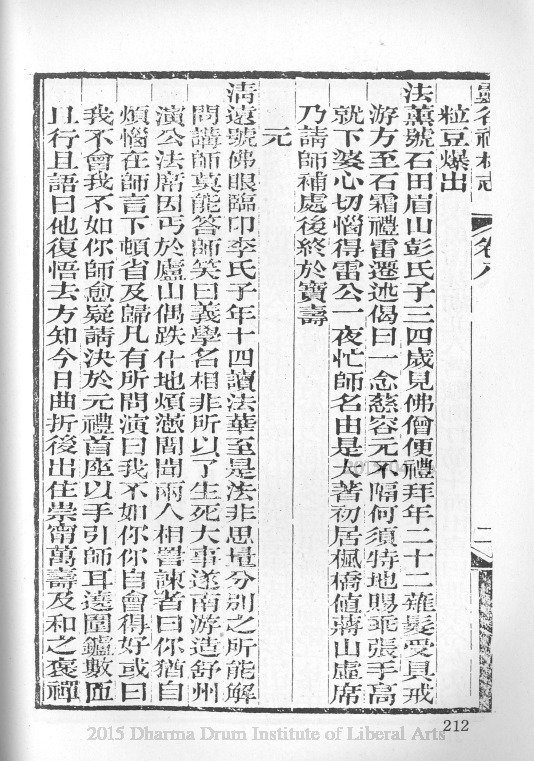 靈谷禪林志 卷八 二
粒豆爆出
法薰號石田眉山彭氏子三四歲見佛僧便禮拜年二十二薙髮受具戒
游方至石霜禮雷遷述偈曰一念慈容元不隔何須特地賜乖張手高
就下婆心切惱得雷公一夜忙師名由是大著初居楓橋值蔣山虛席
乃請師補處後終於寶壽
元
清遠號佛眼臨卭李氏子年十四讀法華至是法非思量分別之所能解
問講師莫能答師笑曰義學名相非所以了生死大事遂南游造舒州
演公法席因丐於廬山偶跌仆地煩懣間聞兩人相詈諫者曰你猶自
煩惱在師言下頓省及歸凡有所問演曰我不如你你自會得好或曰
我不會我不如你師愈疑請決於元禮首座以手引師耳遶圍鑪數匝
且行且語曰他復悟去方知今日曲折後出住崇甯萬壽及和之褒禪
212
2015 Dharma Drum Institute of Liberal Arts